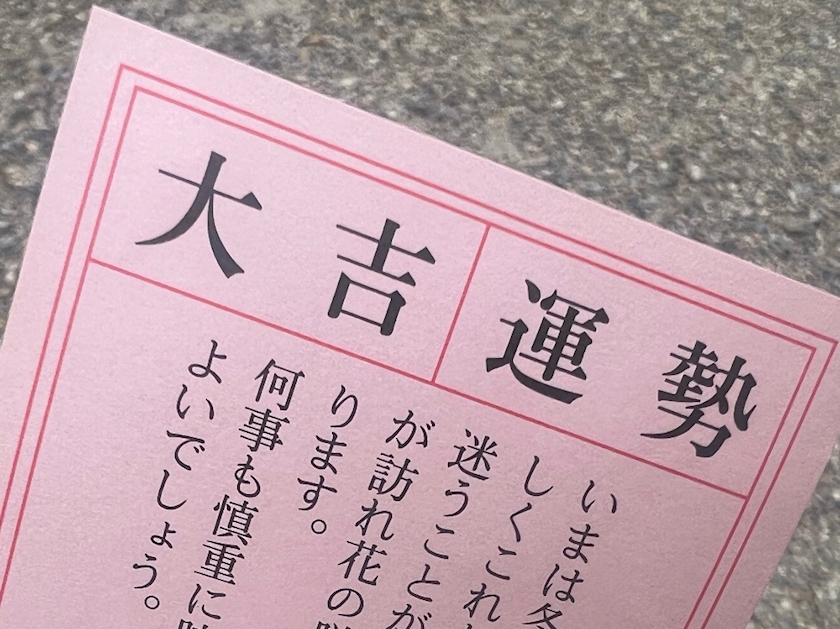 大吉 運勢
いまは冬
しくこれ
迷うことが
が訪れ花の
ります。
何事も慎重に
よいでしょう。